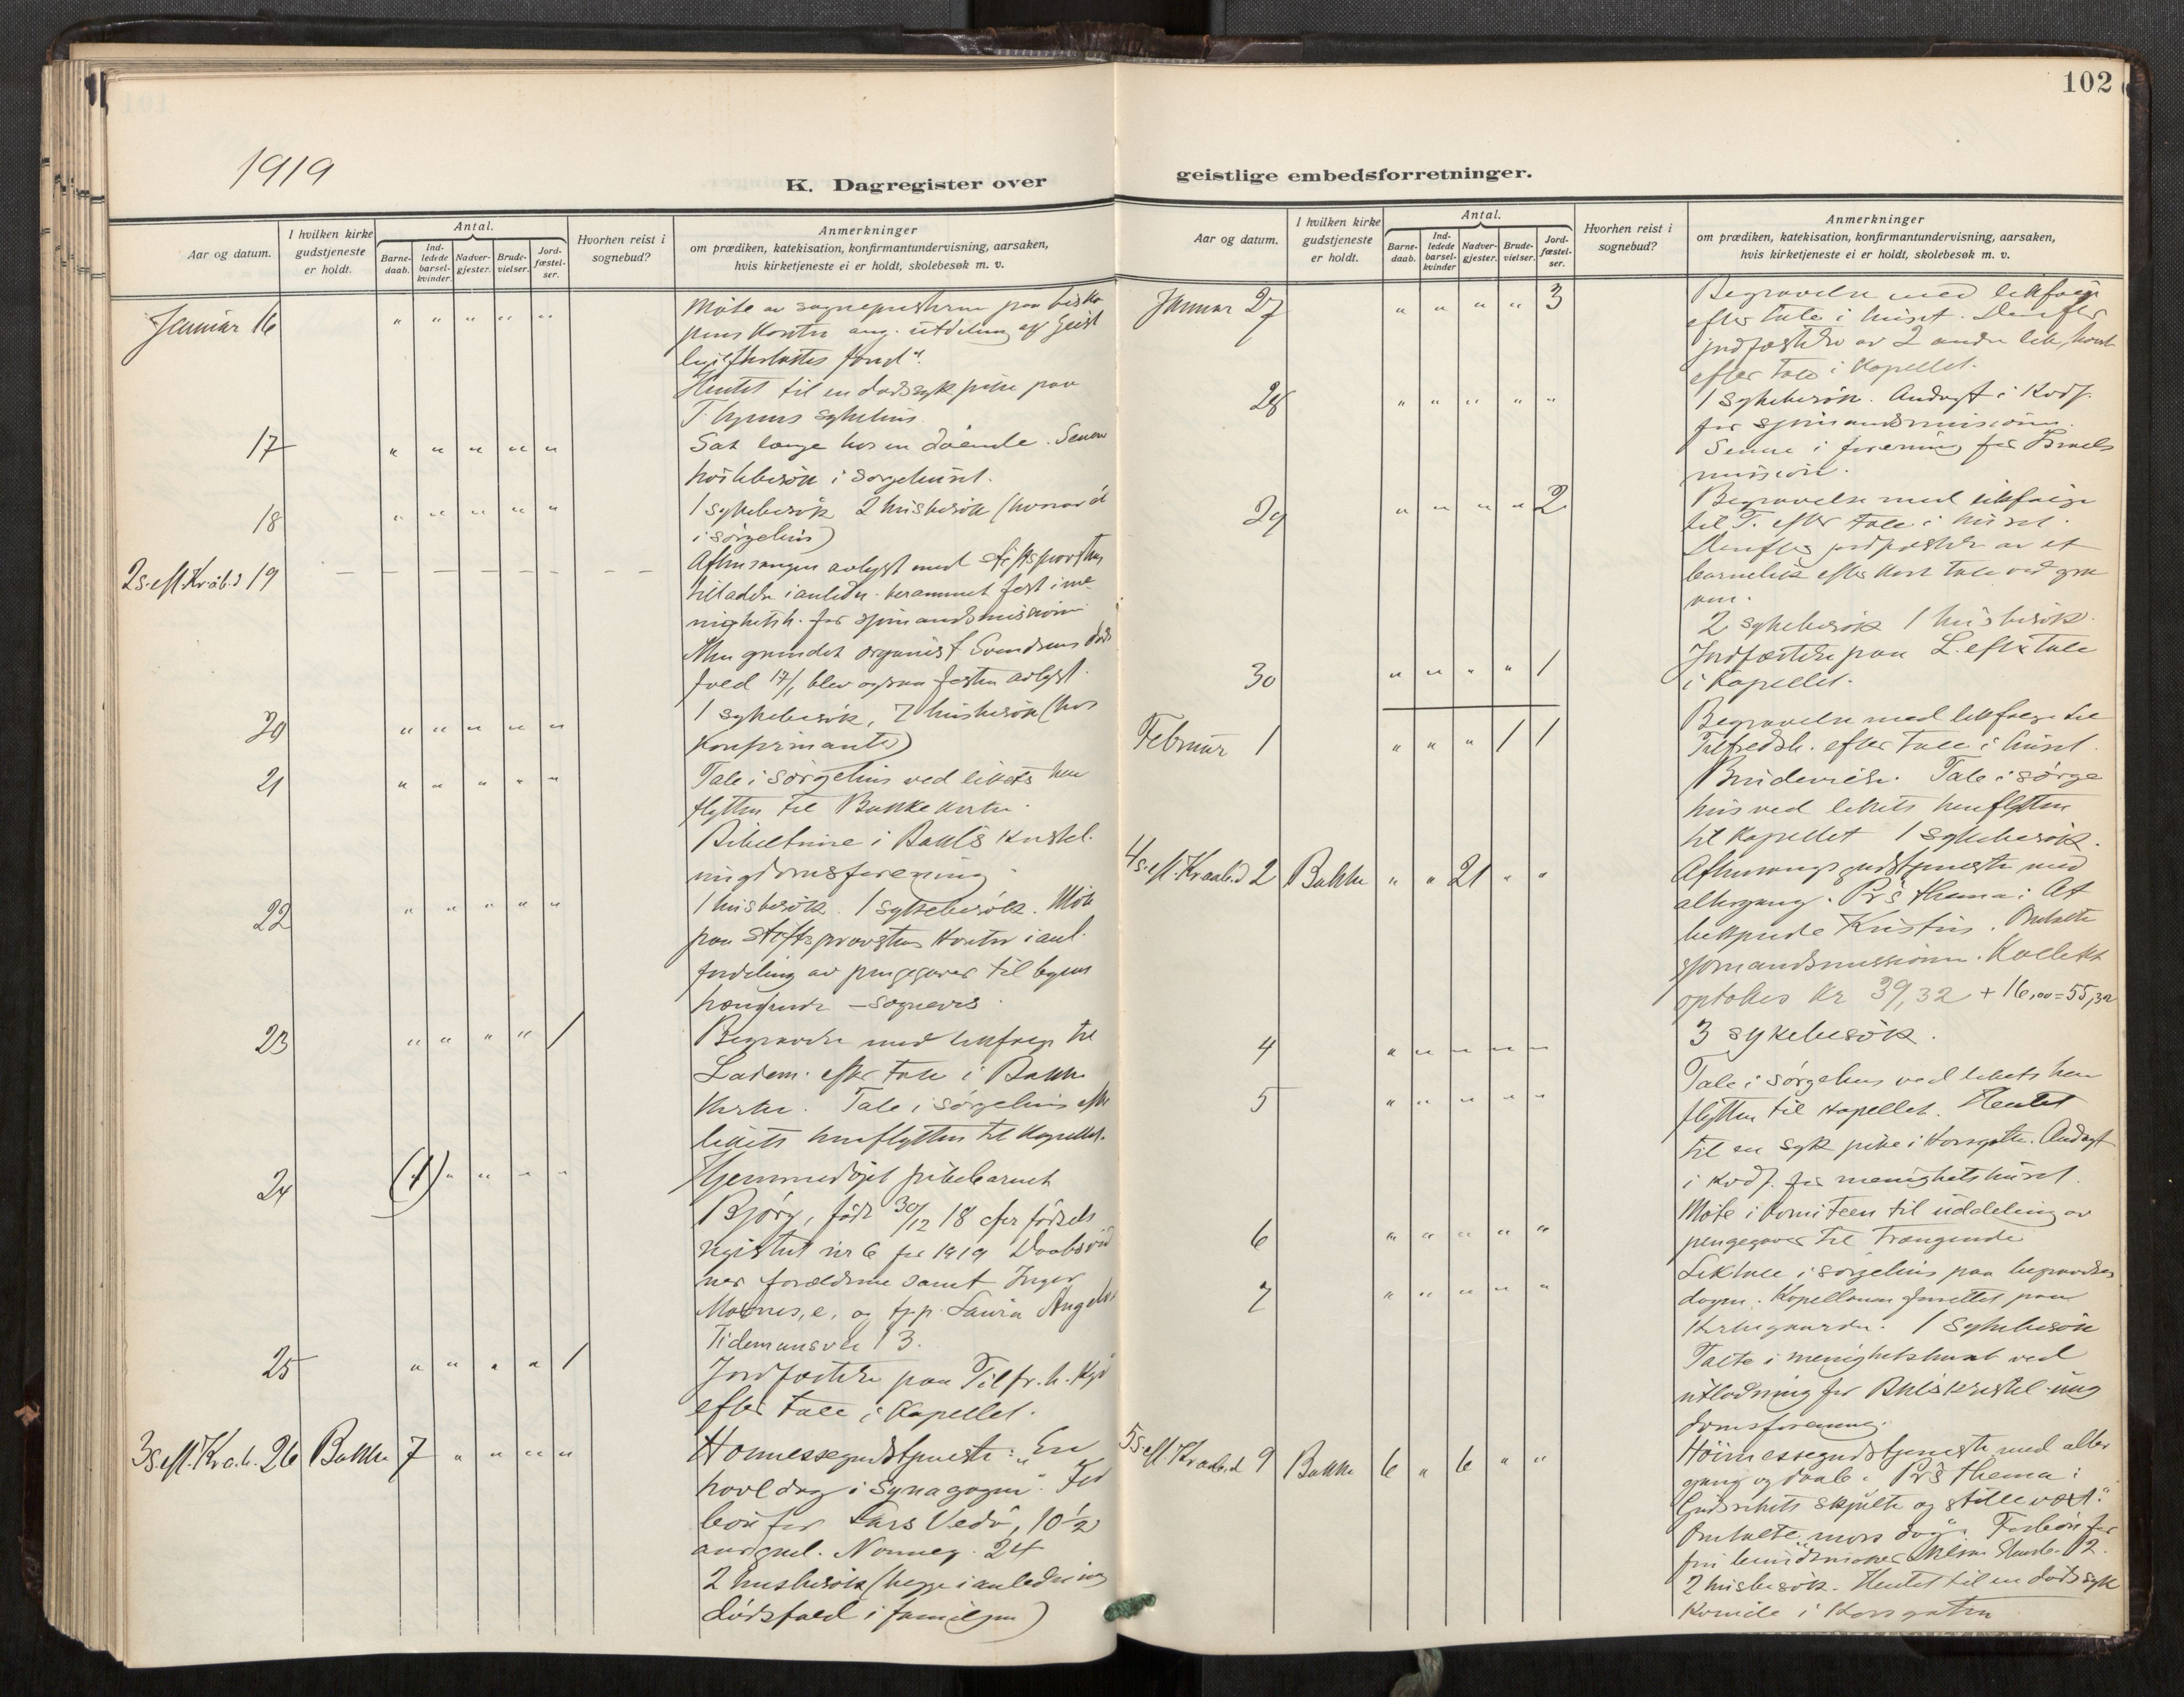 102
1919
K. Dagregister over
geistlige embedsforretninger.
Aar og datum.
I hvilken kirke gudstjeneste er holdt.
Antal.
Barne-daab.
Ind-ledede barsel-kvinder.
Nadver-gjester.
Brude-vielser.
Jord-fæstel-ser.
Hvorhen reist i sognebud?
Anmerkninger
om prædiken, katekisation, konfirmantundervisning, aarsaken,
hvis kirketjeneste ei er holdt, skolebesøk m. v.
Januar 16 " " " " "
Møte av sognepresterne paa bisko
pens kontor ang. utdeling af Geist
fond".
Hentet til en dødssyk pike paa
T.hjems sykehus.
17 " " " " "
Sat længe hos en döende. Senere
besök i sørgehuset.
18 " " " " "
1 sykebesök 2 husbesök (hvorav 1
i sørgehus)
2 s. eft. Kr.åb.d 19 — — — — — — — —
Aftensangen avlyst med stiftsprovstens
tilladelse i anledn. berammet fest i me
nighetsh. for sjömandsmissionen
Men grundet organist Svendsens döds
fald 17/1 blev ogsaa festen avlyst.
20 " " " " "
1 sykebesök, 7 husbesök (hos
konfirmanter)
21 " " " " "
Tale i sörgehus ved likets hen
flytten til Bakke kirke.
Bibeltime i Baklis kristel.
ungdomsforening.
22 " " " " "
1 husbesök. 1 sykebesök. Möte
paa stiftsprovstens kontor i anl.
fordeling av pengegaver til byens
trængende – sognevis.
23 " " " " 1
Begravelse med likfølge til
Ladem. efter tale i Bakke
kirke. Tale i sörgehus efter
likets henflytten til kapellet.
24 (1) " " " "
Hjemmedöpt pikebarnet
Björg, född 30/12 18 cfr födsels
registret nr 6 for 1919 Daabsvid
ner forældrene samt Inger
Moxnes, e. og tp.p. Laura
Tidemansvei 13.
25 " " " " 1
Jordfæstelse paa Tilfr.h. Kgd
efter tale i kapellet.
3 s. eft. Kr.a.b. 26 Bakke 7 " " " "
Høimessegudstjeneste: „En
hvildag i synagogen". For
bön for Lars Vedö, 10½
aar gml. Nonneg. 24
2 husbesök (begge i anledning
dödsfald i familjen)
Aar og datum.
I hvilken kirke gudstjeneste er holdt.
Antal.
Barne-daab.
Ind-ledede barsel-kvinder
Nadver-gjester.
Brude-vielser.
Jord-fæstel-ser.
Hvorhen reist i sognebud?
Anmerkninger
om prædiken, katekisation, konfirmantundervisning, aarsaken,
hvis kirketjeneste ei er holdt, skolebesøk m. v.
Januar 27 " " " " 3
Begravelse med likfølge
efter tale i huset. Derefter
jordfæstelse av 2 andre lik, hvert
efter tale i kapellet.
28 " " " " "
1 sykebesök. Andagt i
for sjömandsmissionen.
Senere i forening for Israels
mission.
29 " " " " 2
Begravelse med likfölge
til T. efter tale i huset.
Derefter jordfæstelse av et
barnelik efter kort tale ved gra
ven.
2 sykebesök 1 husbesök.
30 " " " " 1
Jordfæstelse paa L. efter tale
i kapellet.
Februar 1 " " " 1 1
Begravelse med likfølge til
Tilfredsh. efter tale i huset.
Brudevielse. Tale i sörge
hus ved likets henflytten
til kapellet 1 sykebesök.
4 s. eft. Kr.aab.d 2 Bakke " " 21 " "
Aftensangsgudstjeneste med
altergang. Pr's thema: At
bekjende Kristus. Omtalte
sjömandsmissionen. Kollekt
optokes kr 39,32 + 16,00 = 55,32
4 " " " " "
3 sykebesök.
5 " " " " "
Tale i sörgehus ved likets hen
flytten til kapellet. Hentet
til en syk pike i Korsgaten. Andagt
i for menighetshuset.
6 " " " " "
Möte i komiteen til uddeling av
pengegaver til trængende
7 " " " " "
Liktale i sörgehus paa begravelses
dagen. Kapellanen forrettet paa
kirkegaarden. 1 sykebesök
Talte i menighetshuset ved
utlodning for Baklis kristel. ung
domsforening.
5 s. eft. Kr.aab.d 9 Bakke 6 " 6 " "
Höimessegudstjeneste med alter
gang og daab. Pr's thema:
Gudsrikets skjulte og stille vext."
Omtalte „mors dag". Forbön for
fru
2 husbesök. Hentet til en dødssyk
kvinde i Korsgaten